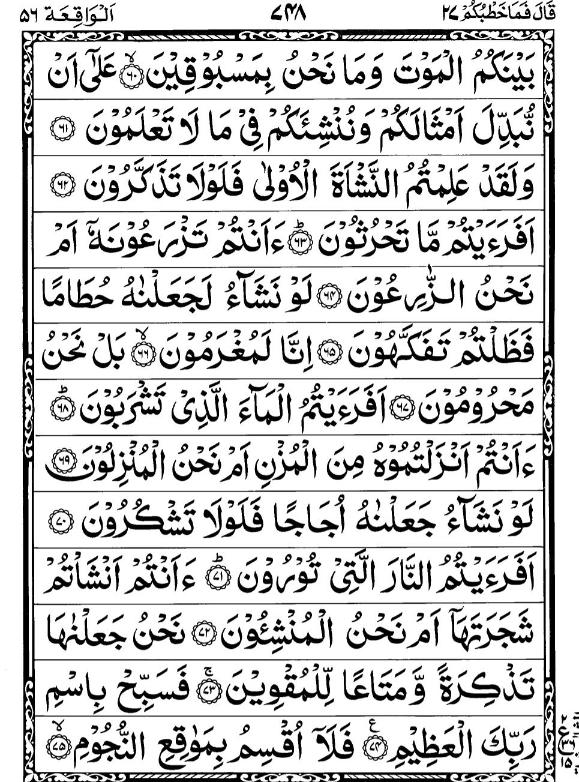 قَالَ فَمَا خَطْبُكُمْ ٢٧ ٧٤٨ اَلْوَاقِعَة ٥٦
بَيْنَكُمُ الْمَوْتَ وَمَا نَحْنُ بِمَسْبُوْقِيْنَ ۙ﴿٦٠﴾ عَلٰٓى اَنْ
نُّبَدِّلَ اَمْثَالَكُمْ وَنُنْشِئَكُمْ فِيْ مَا لَا تَعْلَمُوْنَ ﴿٦١﴾
وَلَقَدْ عَلِمْتُمُ النَّشْاَةَ الْاُوْلٰى فَلَوْلَا تَذَكَّرُوْنَ ﴿٦٢﴾
اَفَرَءَيْتُمْ مَّا تَحْرُثُوْنَ ؕ﴿٦٣﴾ ءَاَنْتُمْ تَزْرَعُوْنَهٗۤ اَمْ
نَحْنُ الزّٰرِعُوْنَ ﴿٦٤﴾ لَوْ نَشَآءُ لَجَعَلْنٰهُ حُطَامًا
فَظَلْتُمْ تَفَكَّهُوْنَ ﴿٦٥﴾ اِنَّا لَمُغْرَمُوْنَ ۙ﴿٦٦﴾ بَلْ نَحْنُ
مَحْرُوْمُوْنَ ﴿٦٧﴾ اَفَرَءَيْتُمُ الْمَآءَ الَّذِيْ تَشْرَبُوْنَ ؕ﴿٦٨﴾
ءَاَنْتُمْ اَنْزَلْتُمُوْهُ مِنَ الْمُزْنِ اَمْ نَحْنُ الْمُنْزِلُوْنَ ﴿٦٩﴾
لَوْ نَشَآءُ جَعَلْنٰهُ اُجَاجًا فَلَوْلَا تَشْكُرُوْنَ ﴿٧٠﴾
اَفَرَءَيْتُمُ النَّارَ الَّتِيْ تُوْرُوْنَ ؕ﴿٧١﴾ ءَاَنْتُمْ اَنْشَاْتُمْ
شَجَرَتَهَاۤ اَمْ نَحْنُ الْمُنْشِئُوْنَ ﴿٧٢﴾ نَحْنُ جَعَلْنٰهَا
تَذْكِرَةً وَّمَتَاعًا لِّلْمُقْوِيْنَ ۚ﴿٧٣﴾ فَسَبِّحْ بِاسْمِ
رَبِّكَ الْعَظِيْمِ ﴿٧٤﴾ فَلَاۤ اُقْسِمُ بِمَوٰقِعِ النُّجُوْمِ ۙ﴿٧٥﴾